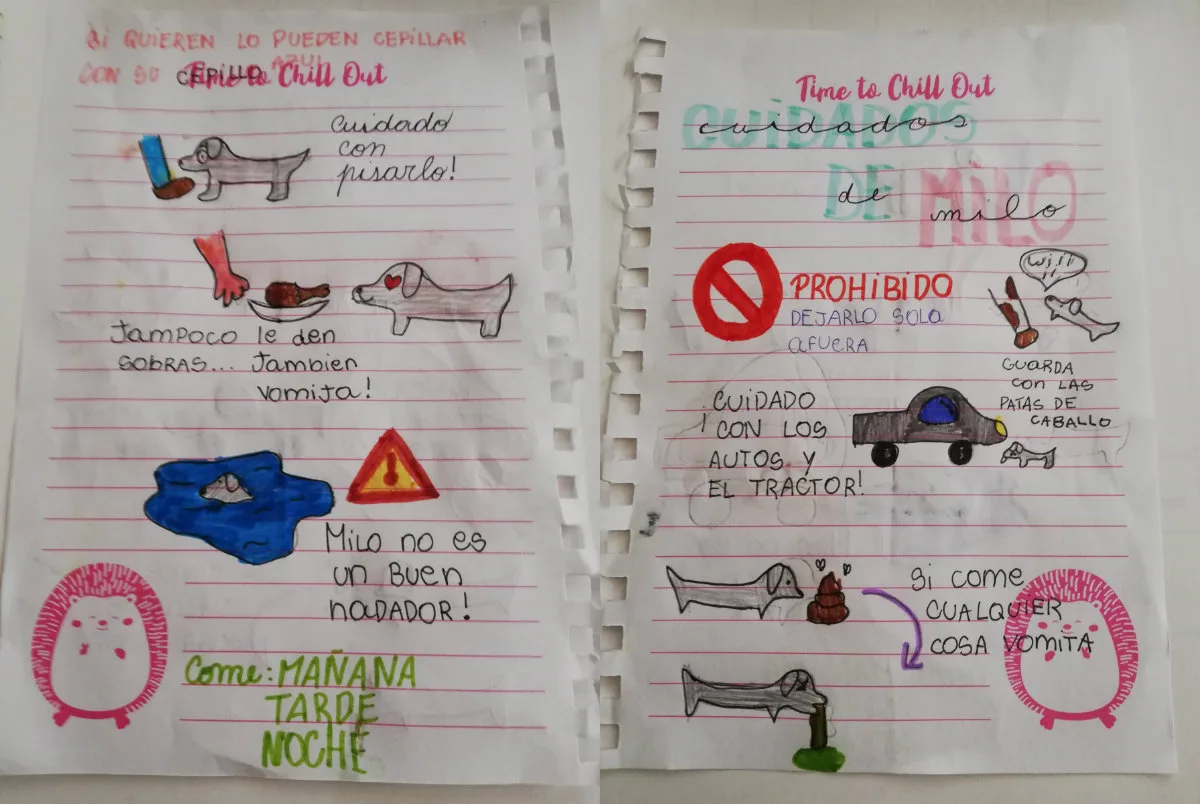 Si QUiEREN LO PUEDEN CEPiLLAR
CON SU CEPiLLO AZUL
Time to Chill Out
Cuidado
con
pisarlo!
TAMPOCO le den
SOBRAS... Tambien
vomita!
Milo no es
un Buen
nadador!
Come: MAÑANA
TARDE
NOCHE
Time to Chill Out
CUiDADOS
cuidados
DE MiLO
de milo
PROHiBiDO
DEJARLO SOLO
AFUERA
Wiii
GUARDA
CON LAS
PATAS DE
CABALLO
¡CUiDADO
CON LOS
AUTOS Y
EL TRACTOR!
Si come
CUALQUIER
COSA VOMITA